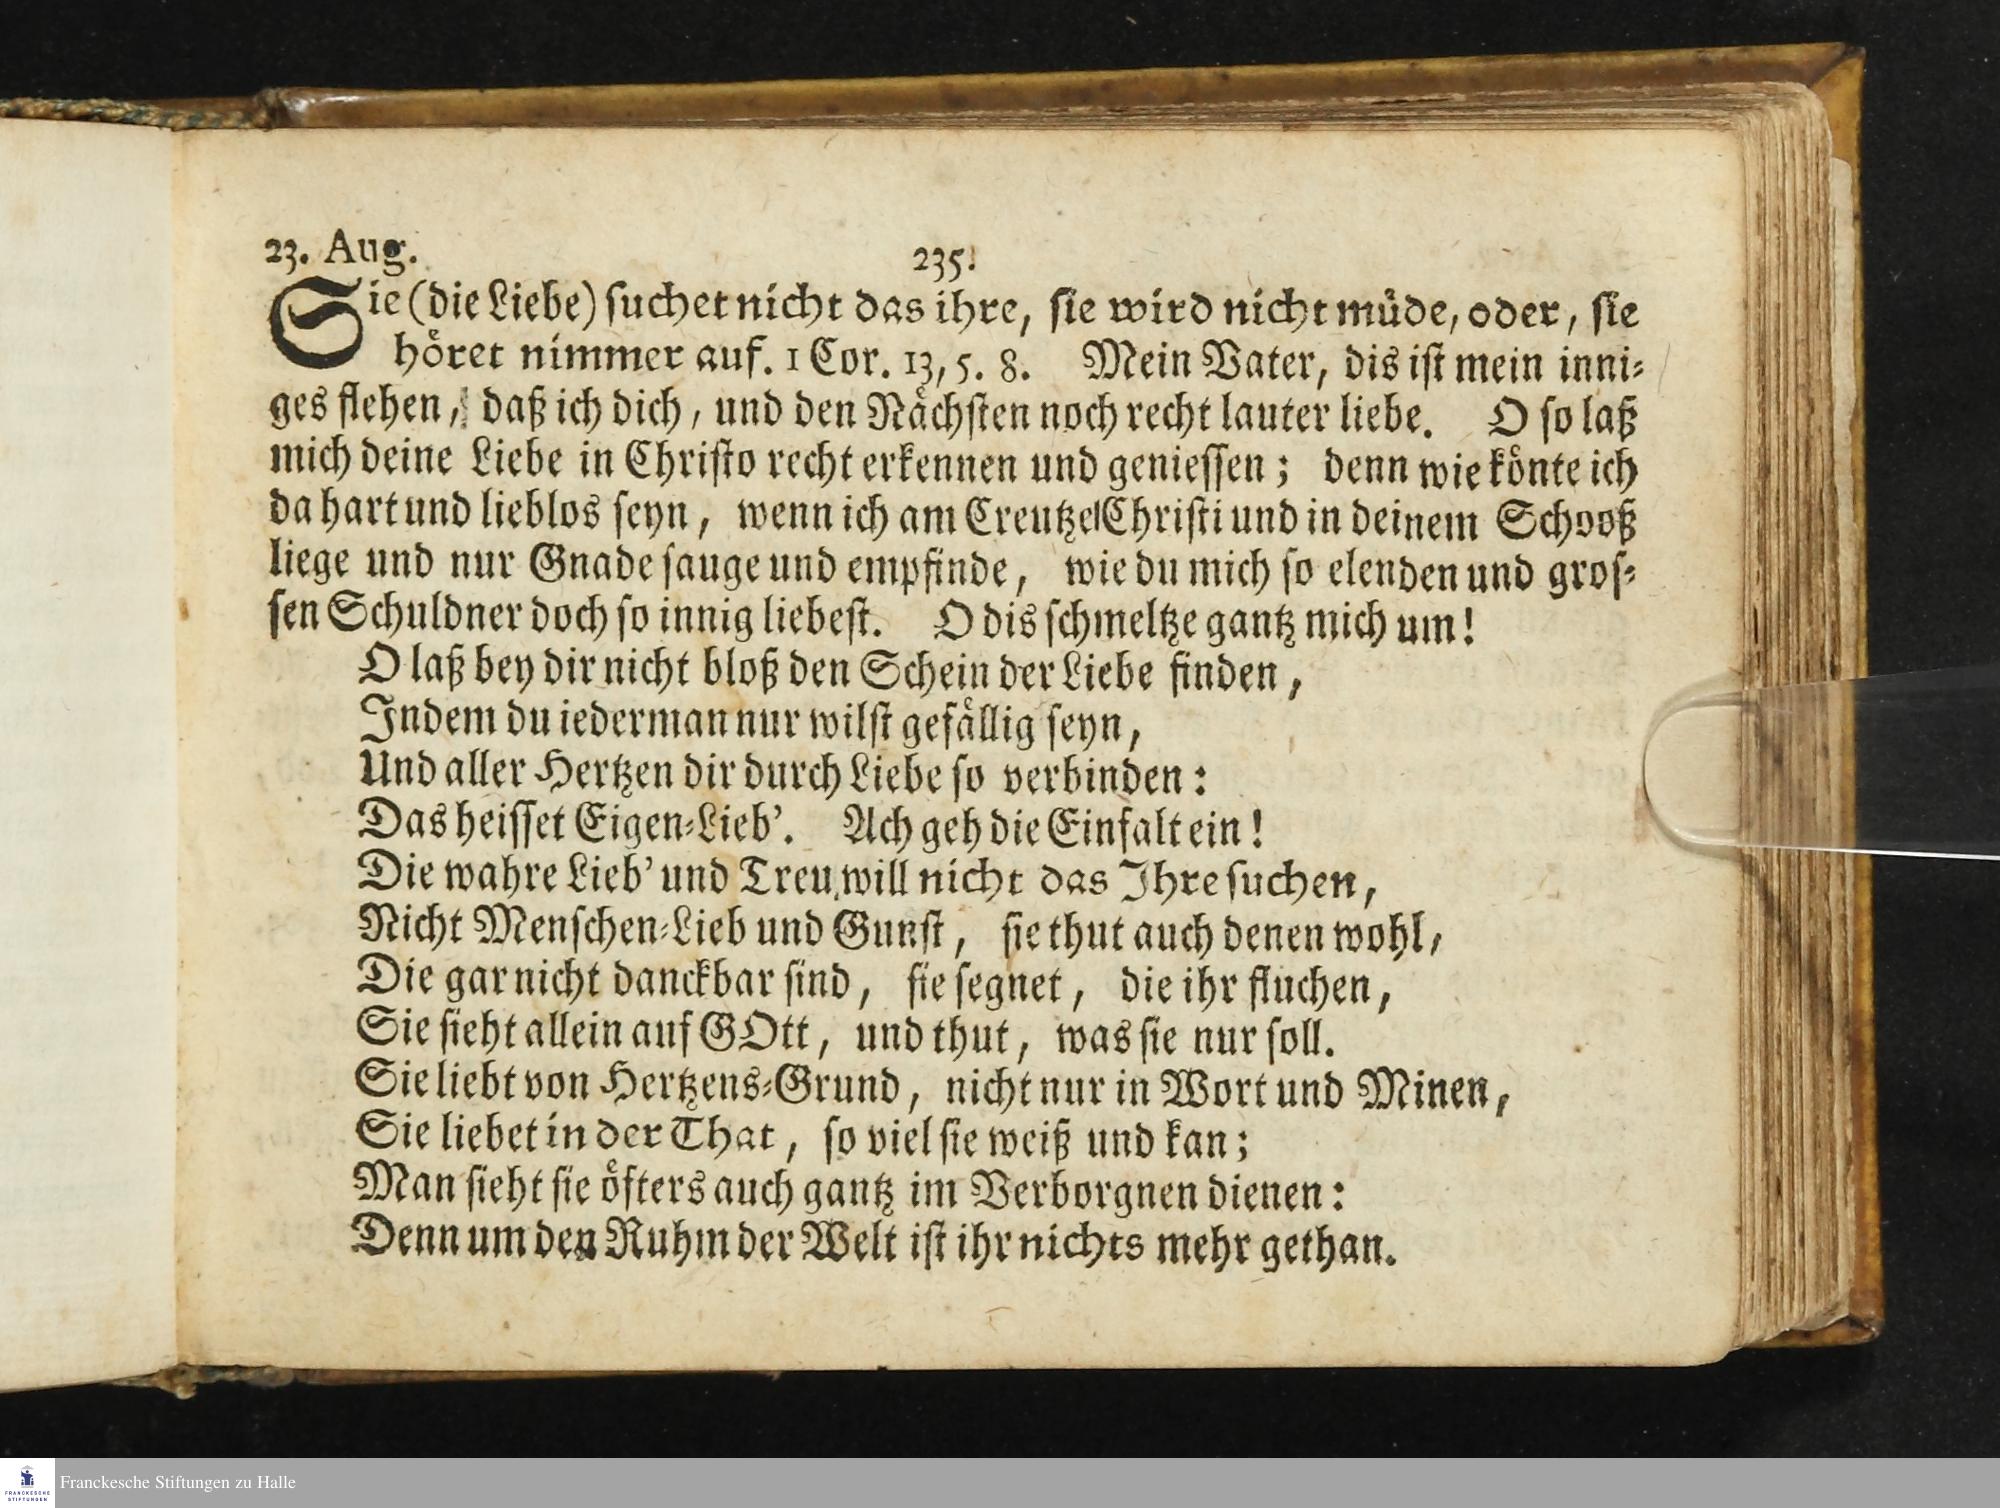 23. Aug.
235.
Sie (die Liebe) suchet nicht das ihre, sie wird nicht müde, oder, sie
höret nimmer auf. 1 Cor. 13, 5. 8. Mein Vater, dis ist mein inni-
ges flehen, daß ich dich, und den Nächsten noch recht lauter liebe. O so laß
mich deine Liebe in Christo recht erkennen und geniessen; denn wie könte ich
da hart und lieblos seyn, wenn ich am Creutze Christi und in deinem Schooß
liege und nur Gnade sauge und empfinde, wie du mich so elenden und gros-
sen Schuldner doch so innig liebest. O dis schmeltze gantz mich um!
O laß bey dir nicht bloß den Schein der Liebe finden,
Indem du iederman nur wilst gefällig seyn,
Und aller Hertzen dir durch Liebe so verbinden:
Das heisset Eigen-Lieb'. Ach geh die Einfalt ein!
Die wahre Lieb' und Treu will nicht das Ihre suchen,
Nicht Menschen-Lieb und Gunst, sie thut auch denen wohl,
Die gar nicht danckbar sind, sie segnet, die ihr fluchen,
Sie sieht allein auf GOtt, und thut, was sie nur soll.
Sie liebt von Hertzens-Grund, nicht nur in Wort und Minen,
Sie liebet in der That, so viel sie weiß und kan;
Man sieht sie öfters auch gantz im Verborgnen dienen:
Denn um den Ruhm der Welt ist ihr nichts mehr gethan.
FRANCKESCHE
STIFTUNGEN
Franckesche Stiftungen zu Halle